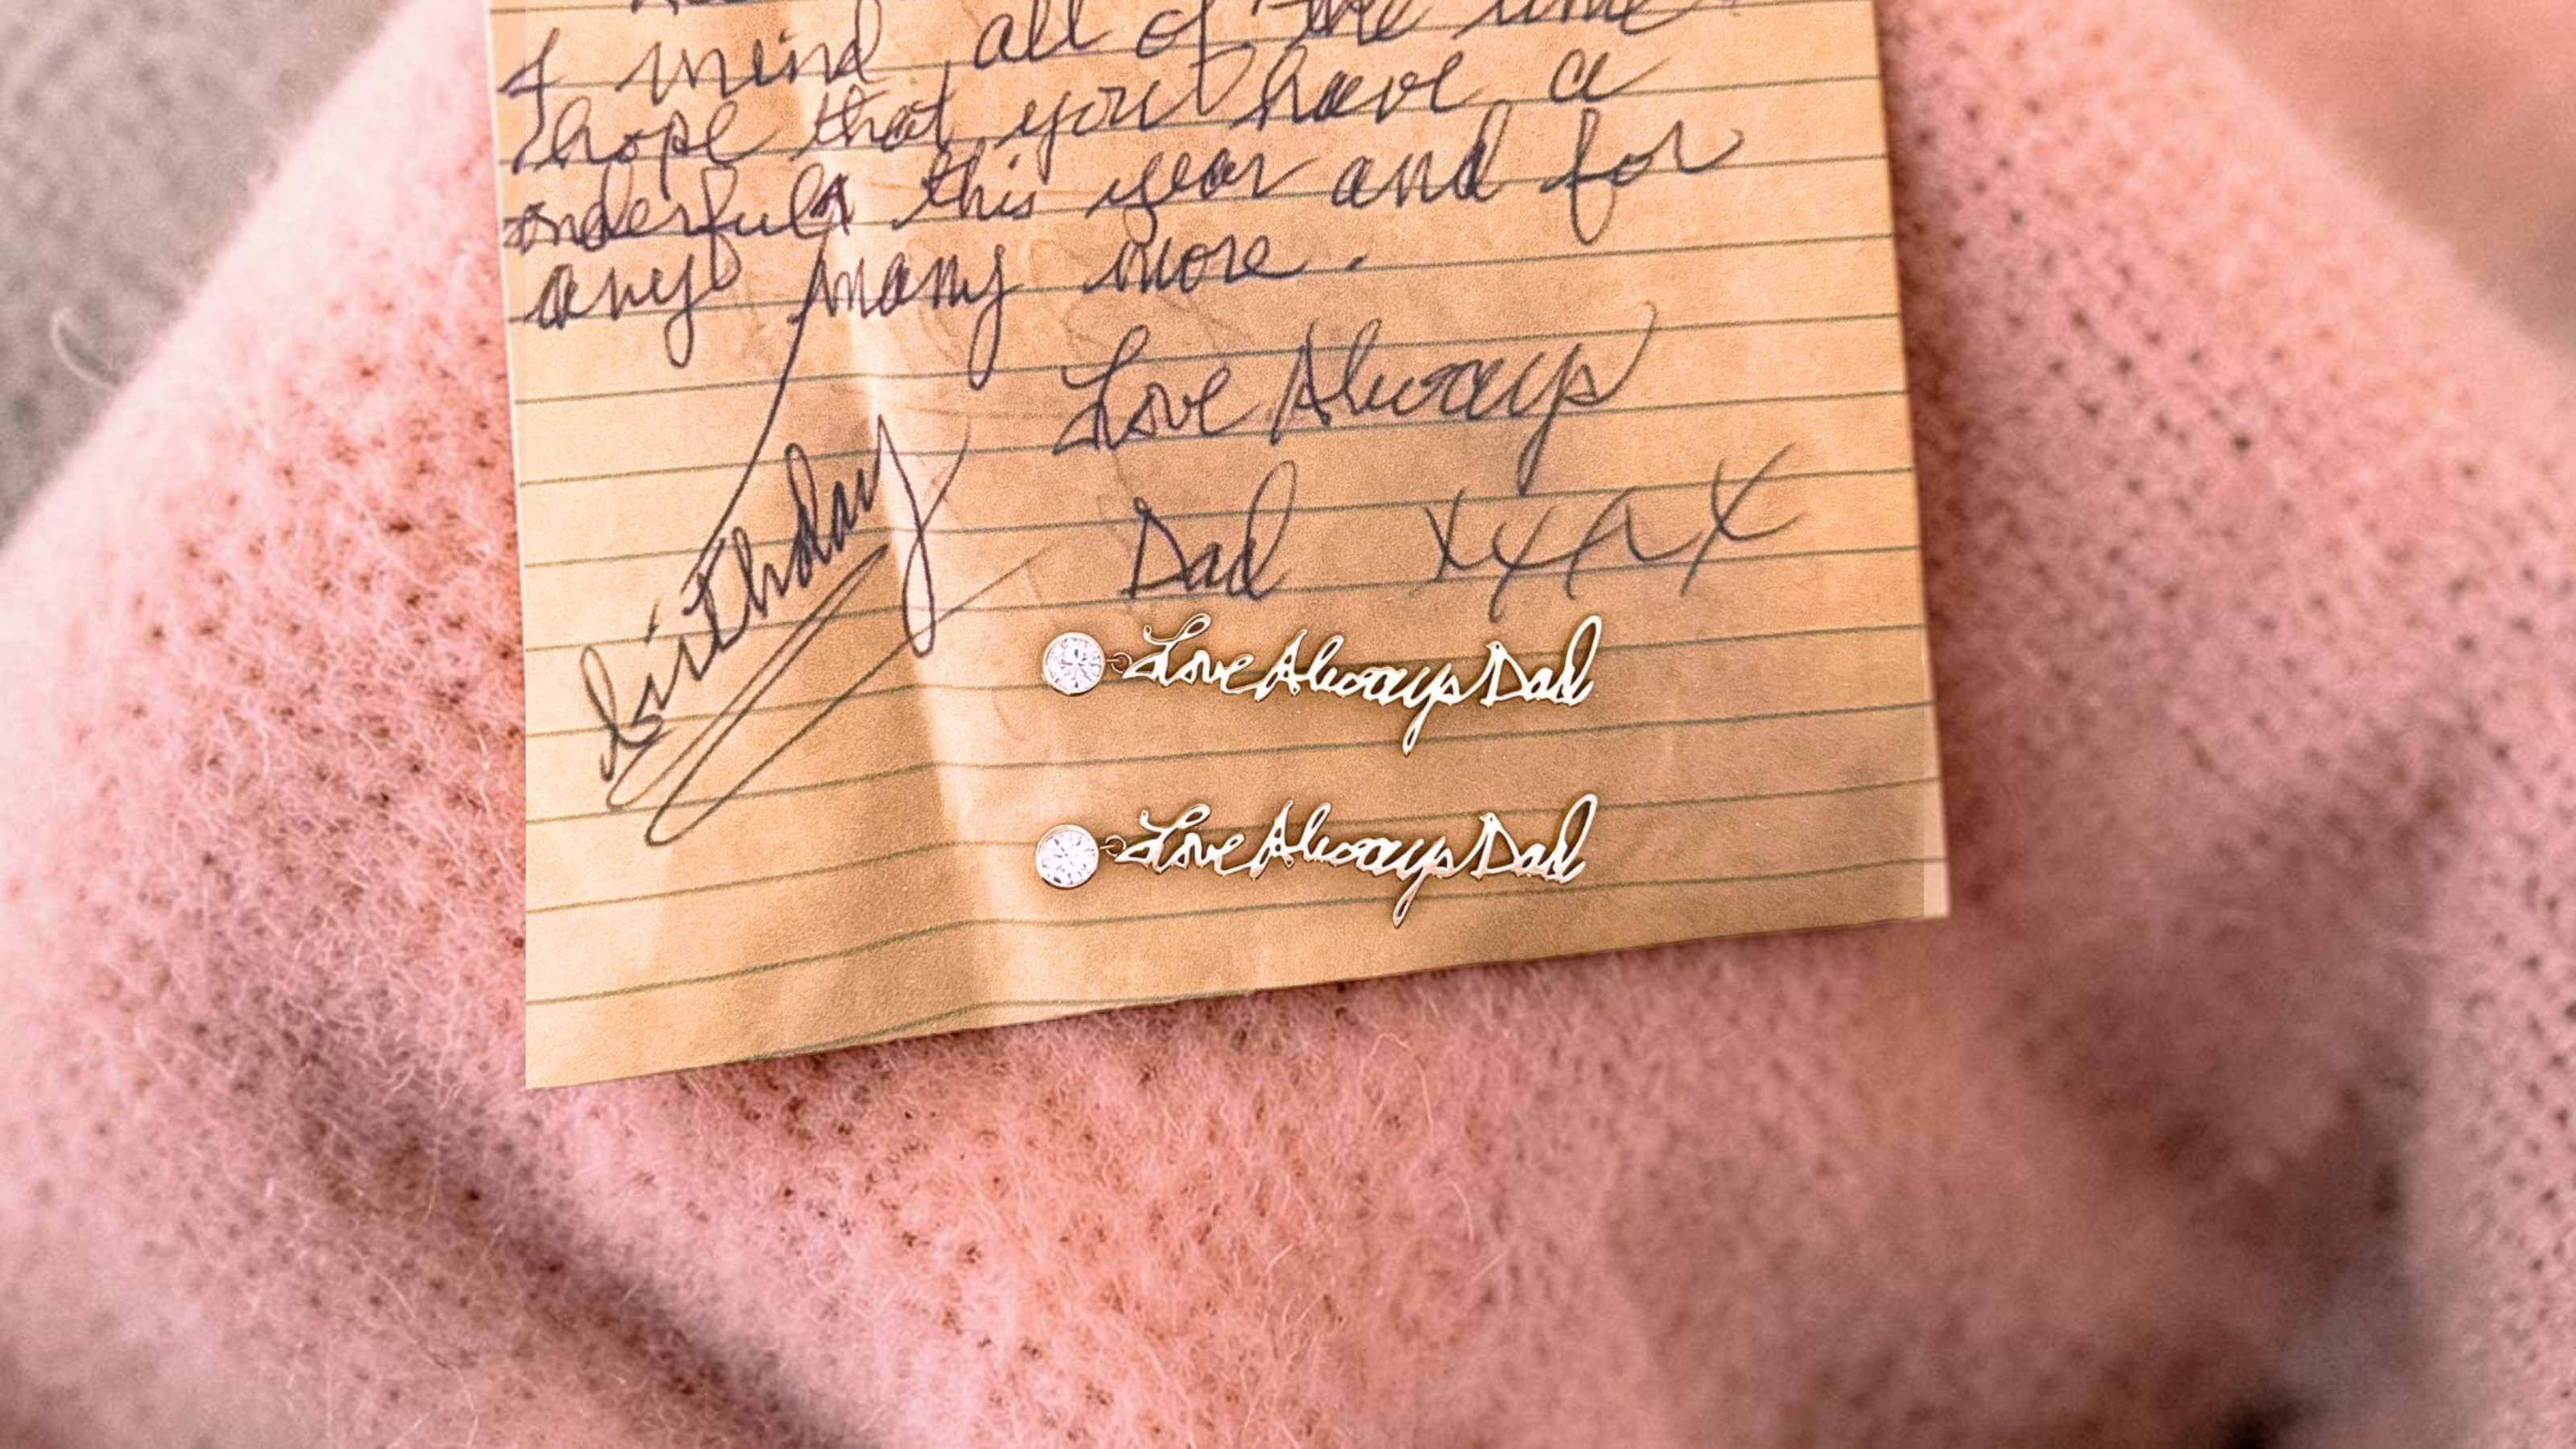 I mind all of the time
hope that you have a
onderful this year and for
any many more.
birthday
Love Always
Dad xxxx
Love Always Dad
Love Always Dad